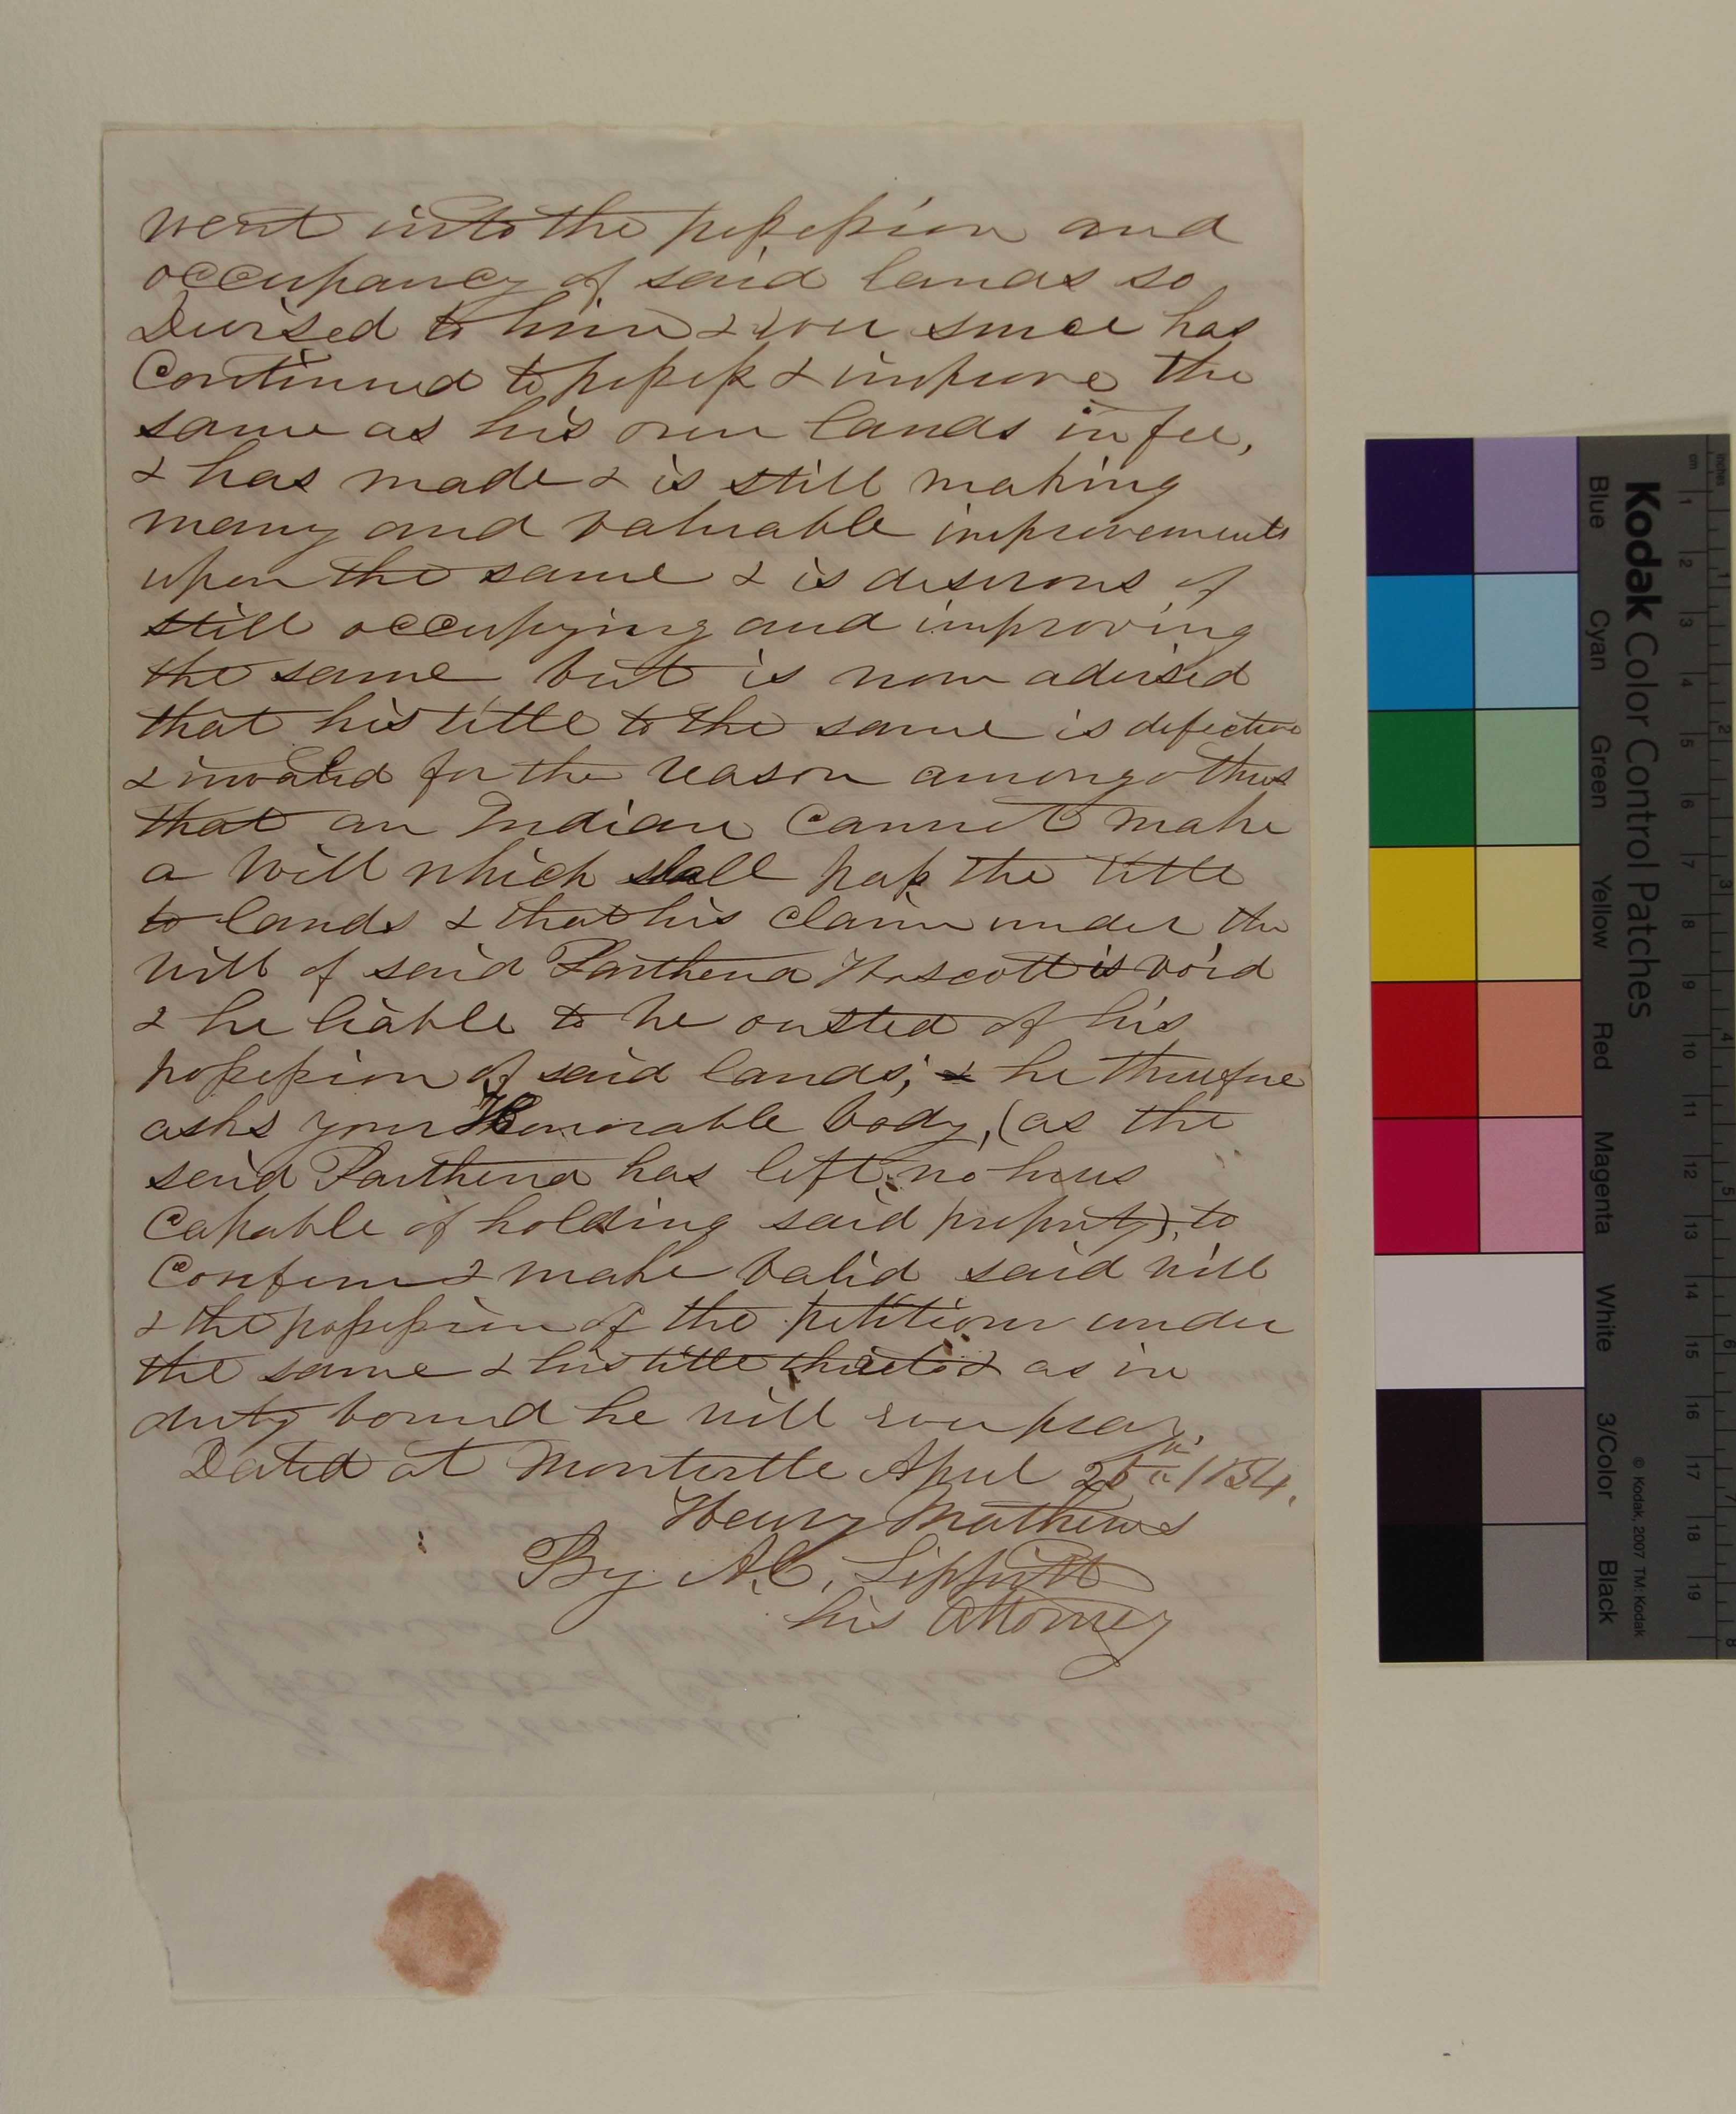 went into the possession and
occupancy of said lands so
Devised to him & ever since has
Continued to possess & improve the
same as his own lands in fee,
& has made & is still making
many and valuable improvements
upon the same & is desirous of
still occupying and improving
the same but is now advised
that his title to the same is defective
& invalid for the reason among others
that an Indian Cannot make
a Will which shall pass the title
to lands & that his Claim under the
will of said Parthena Hoscott is void
& he liable to be ousted of his
possession of said lands; & he therefore
asks your Honorable body, (as the
said Parthena has left no heirs
Capable of holding said property), to
Confirm & make valid said will
& the possession of the petitioner under
the same & his title thereto & as in
duty bound he will ever pray.
Dated at Montville April 25th 1854.
Henry Mathews
By A.C. Lippitt
his Attorney
Kodak Color Control Patches
Blue
Cyan
Green
Yellow
Red
Magenta
White
3/Color
Black
© Kodak, 2007 TM: Kodak
inches
cm
1 2 3 4 5 6 7 8 9 10 11 12 13 14 15 16 17 18 19
1 2 3 4 5 6 7 8